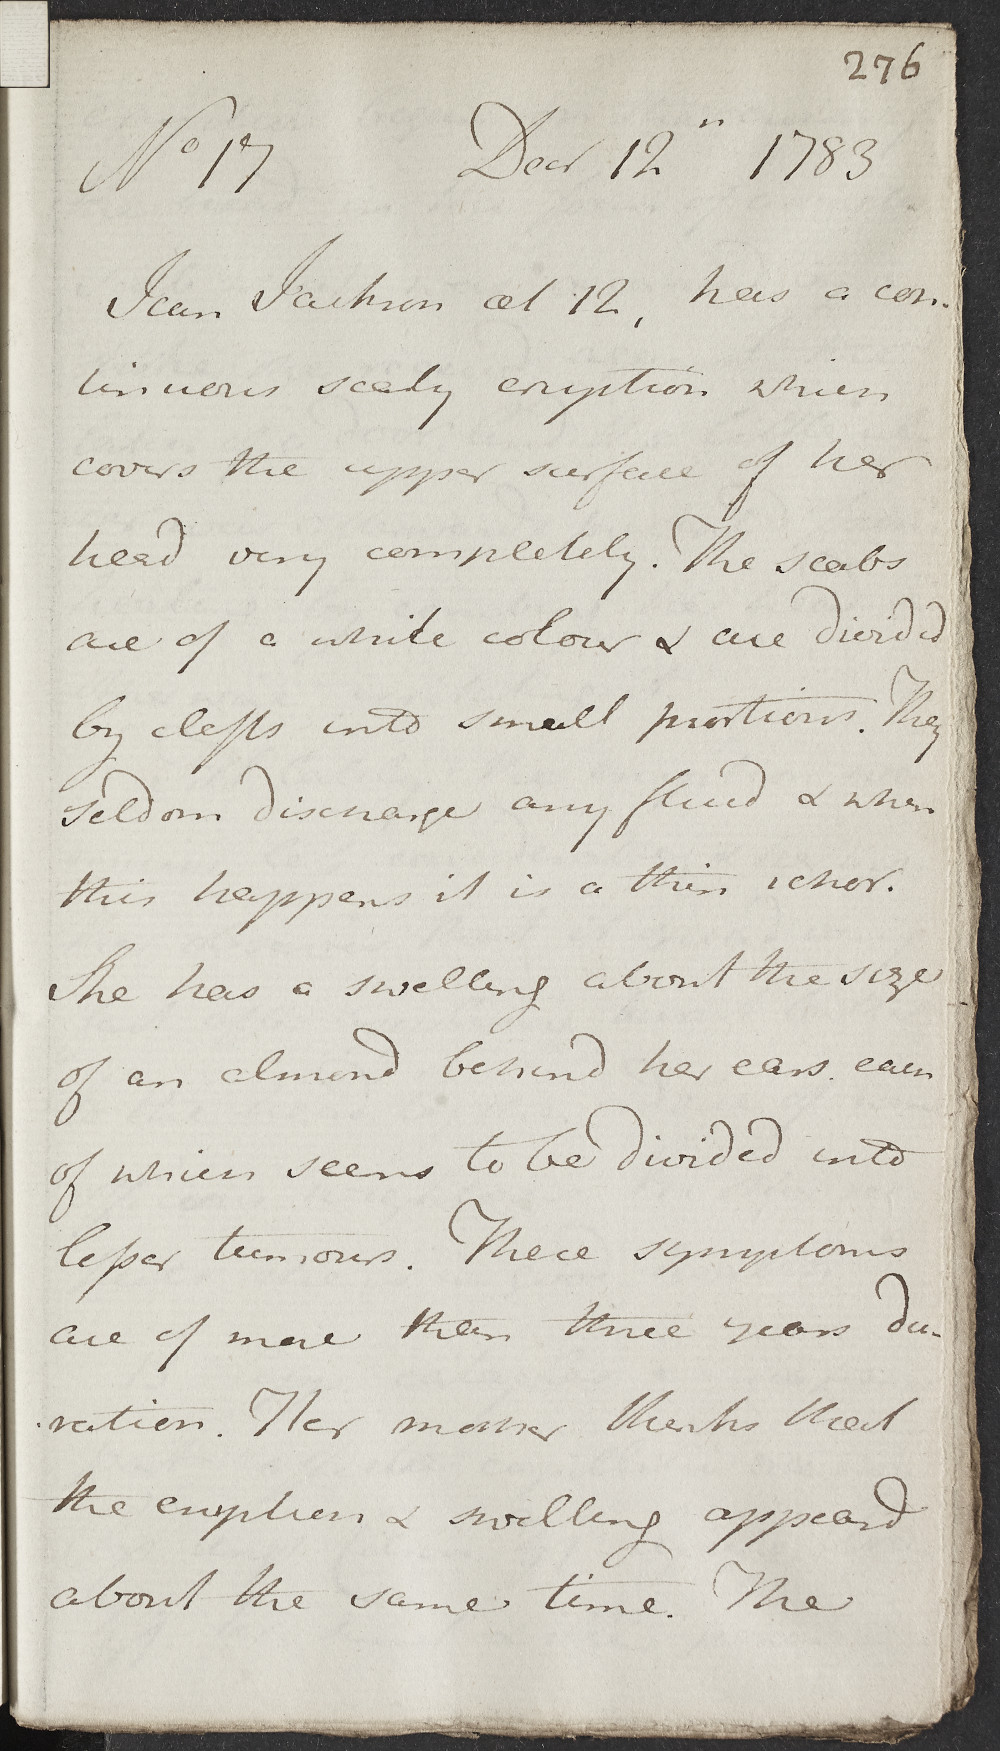 276
No 17 Decr 12" 1783
Jean Jackson æt 12, has a con-
tinuous scaly eruption which
covers the upper surface of her
head very completely. The scabs
are of a white colour & are divided
by clefts into small portions. They
seldom discharge any fluid & when
this happens it is a thin ichor.
She has a swelling about the size
of an almond behind her ears. each
of which seems to be divided into
lesser tumours. These symptoms
are of more than three years du-
ration. Her mother thinks that
the eruption & swelling appeard
about the same time. The